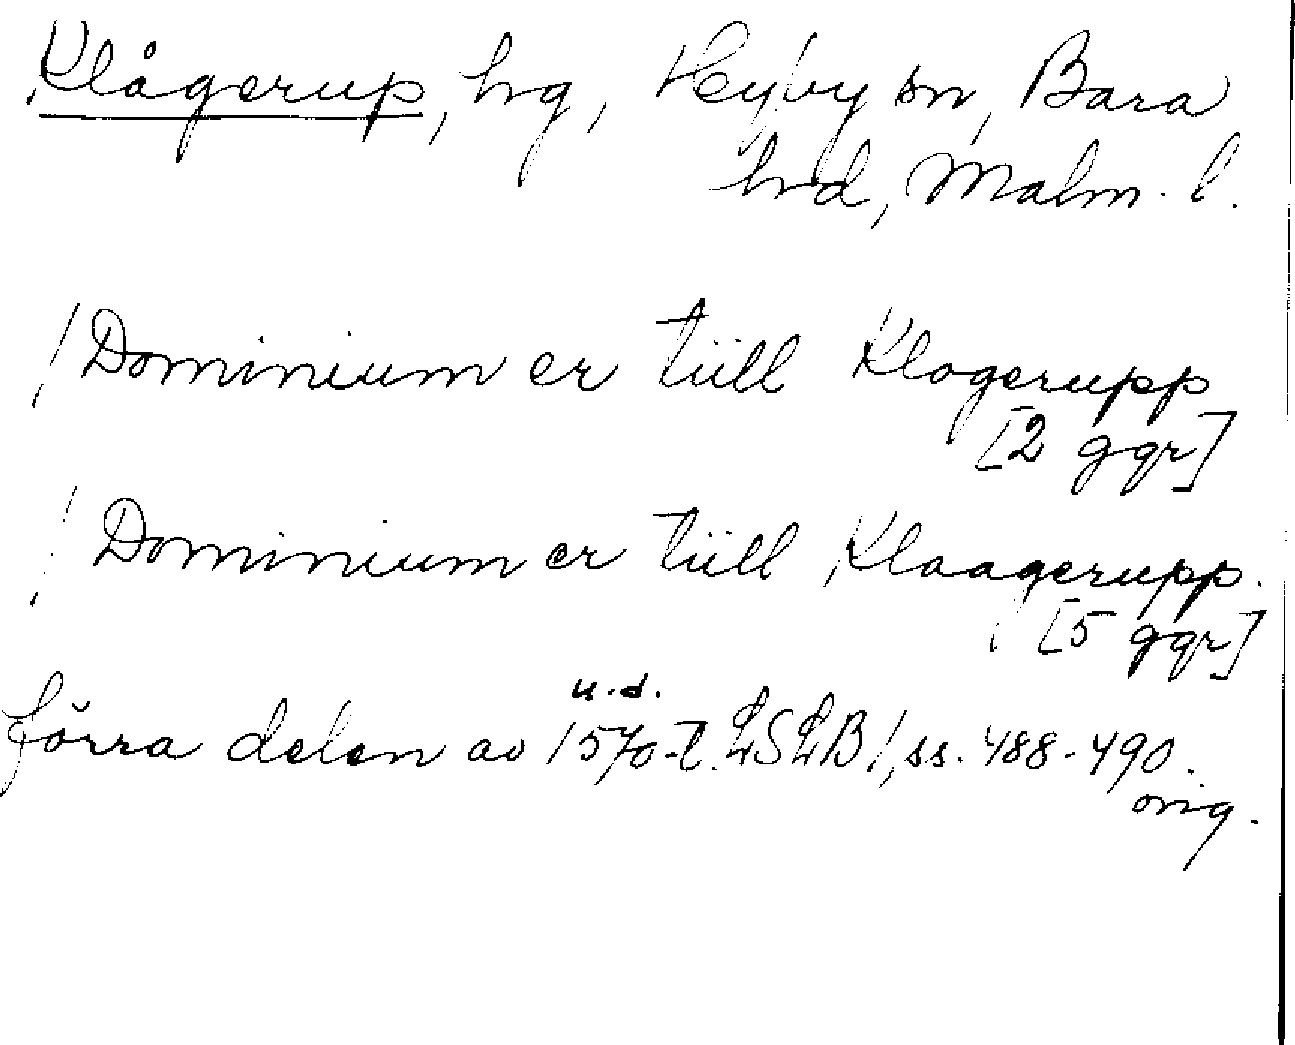 Klågerup, hg, Hyby sn, Bara
hd, Malm. l.
/Dominium er tiill Klogerupp
[2 ggr]
/Dominium er tiill Klaagerupp.
[5 ggr]
u.d.
förra delen av 1570-t. LSLB1, ss. 488-490.
orig.